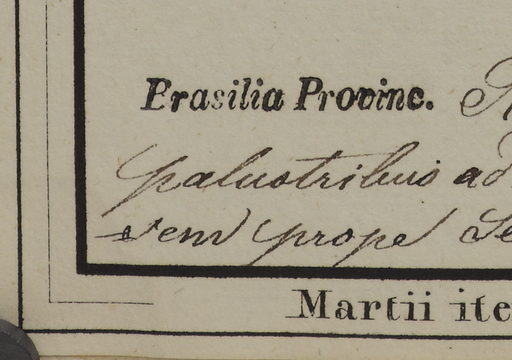 Brasilia Provinc.
palustribus ad
prope Se
Martii ite